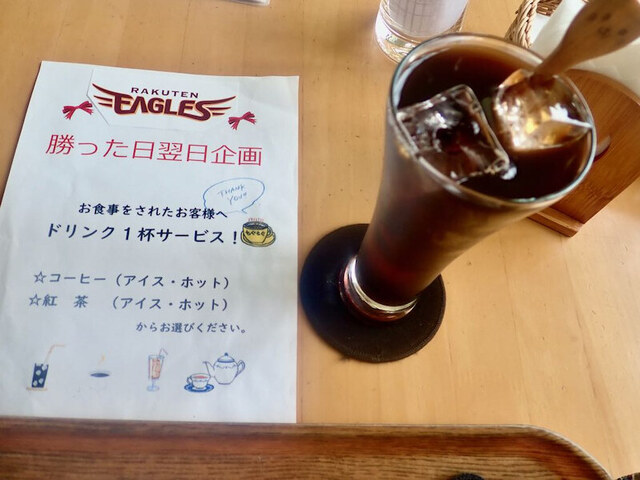 RAKUTEN
EAGLES
勝った日翌日企画
THANK
YOU!
お食事をされたお客様へ
ドリンク１杯サービス！
☆コーヒー（アイス・ホット）
☆紅　茶　（アイス・ホット）
からお選びください。